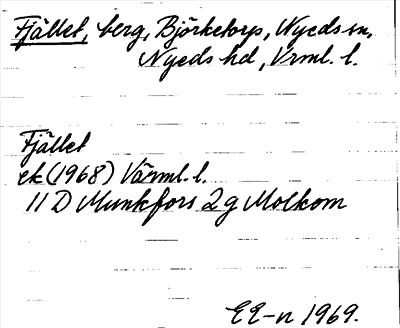 Fjället, berg, Björketorps, Nyeds sn,
Nyeds hd, Vrml. l.
Fjället
ek (1968) Värml. l.
11 D Munkfors 2 g Molkom
EE-n 1969.